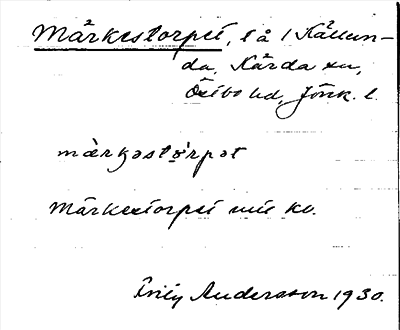 Märkestorpet, t å / Källun-
da, Kärda sn,
Östbo hd, Jönk. l.
märkəstơrpət
Märkestorpet
Andersson 1930.